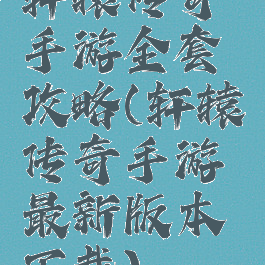 轩辕传奇
手游全套
攻略(轩辕
传奇手游
最新版本
下载)